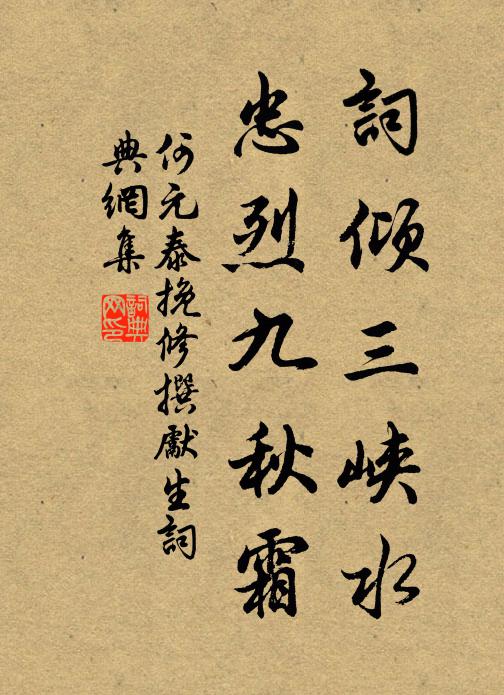 詞傾三峽水
忠烈九秋霜
何元泰挽修撰獻生詞
典網集
詞典
网印